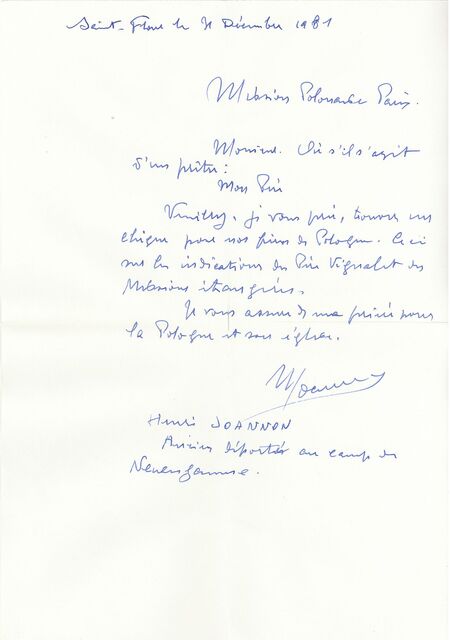 Saint-Flour le 31 Décembre 1981
Mission Polonaise Paris.
Monsieur. Ou s'il s'agit
d'un prêtre:
Mon Père
Veuillez, je vous prie, trouver un
chèque pour nos frères de Pologne. Ceci
sur les indications du Père Vignalet des
Missions étrangères.
Je vous assure de ma prière pour
la Pologne et son église.
Henri JOANNON
Ancien déporté au camp de
Neuengamme.